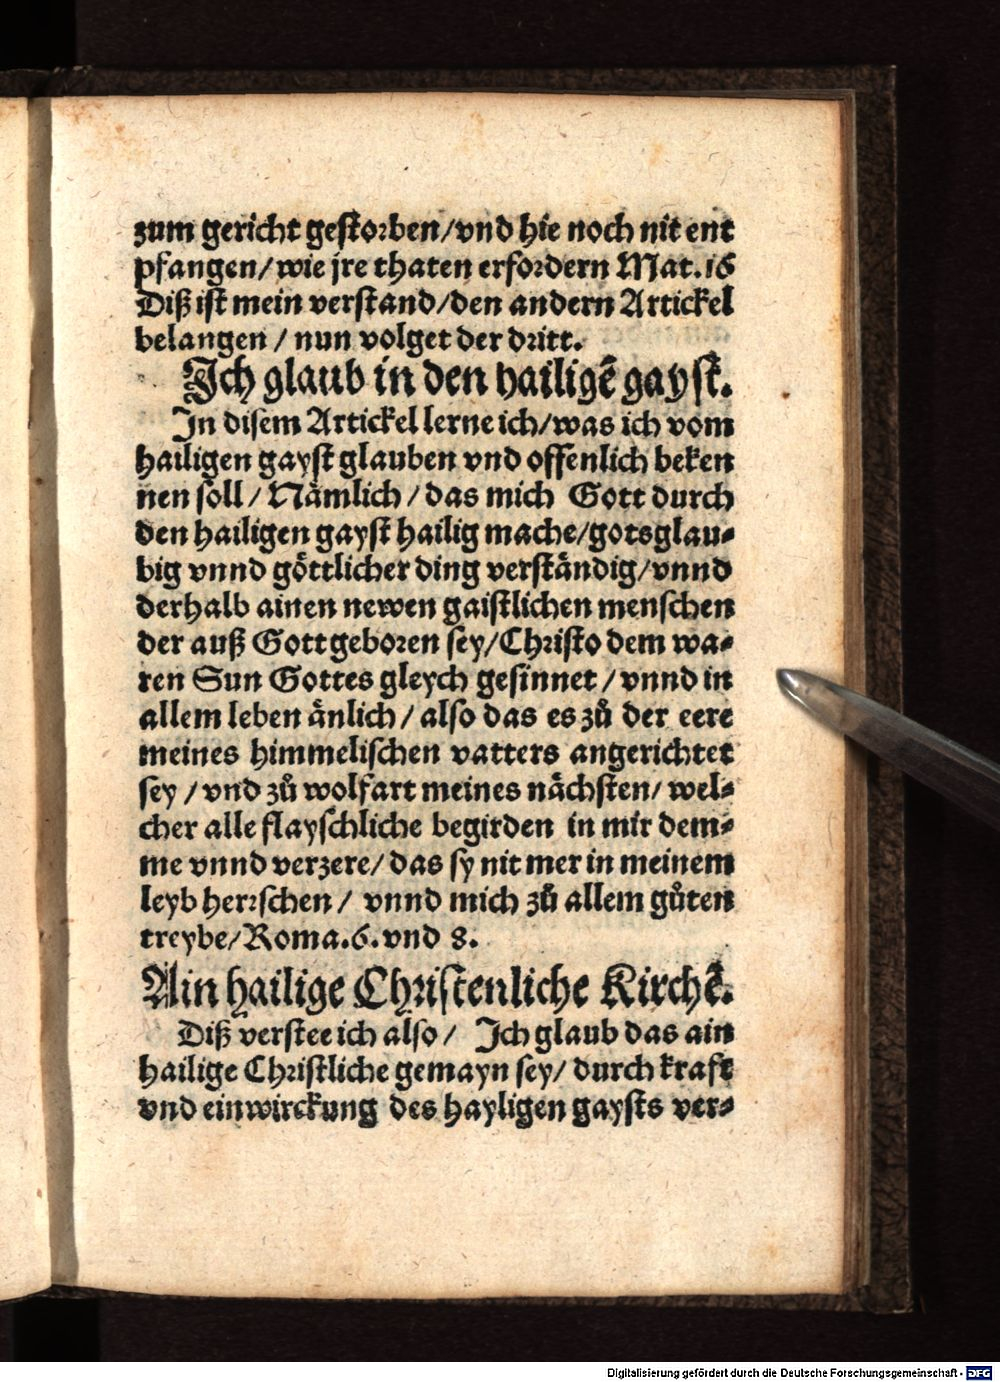 zum gericht gestorben/vnd hie noch nit ent
pfangen/wie jre thaten erfordern Mat.16
Diß ist mein verstand/den andern Artickel
belangen / nun volget der dritt.
Ich glaub in den hailigē gayst.
In disem Artickel lerne ich/was ich vom
hailigen gayst glauben vnd offenlich beken
nen soll / Nämlich / das mich Gott durch
den hailigen gayst hailig mache/gotsglau⸗
big vnnd göttlicher ding verständig/vnnd
derhalb ainen newen gaistlichen menschen
der auß Gott geboren sey/Christo dem wa⸗
ren Sun Gottes gleych gesinnet / vnnd in
allem leben änlich / also das es zů der eere
meines himmelischen vatters angerichtet
sey / vnd zů wolfart meines nächsten/ wel⸗
cher alle flayschliche begirden in mir dem⸗
me vnnd verzere/ das sy nit mer in meinem
leyb herrschen / vnnd mich zů allem gůten
treybe/Roma.6.vnd 8.
Ain hailige Christenliche Kirchē.
Diß verstee ich also / Ich glaub das ain
hailige Christliche gemayn sey/ durch kraft
vnd einwirckung des hayligen gaysts ver⸗
Digitalisierung gefördert durch die Deutsche Forschungsgemeinschaft - DFG